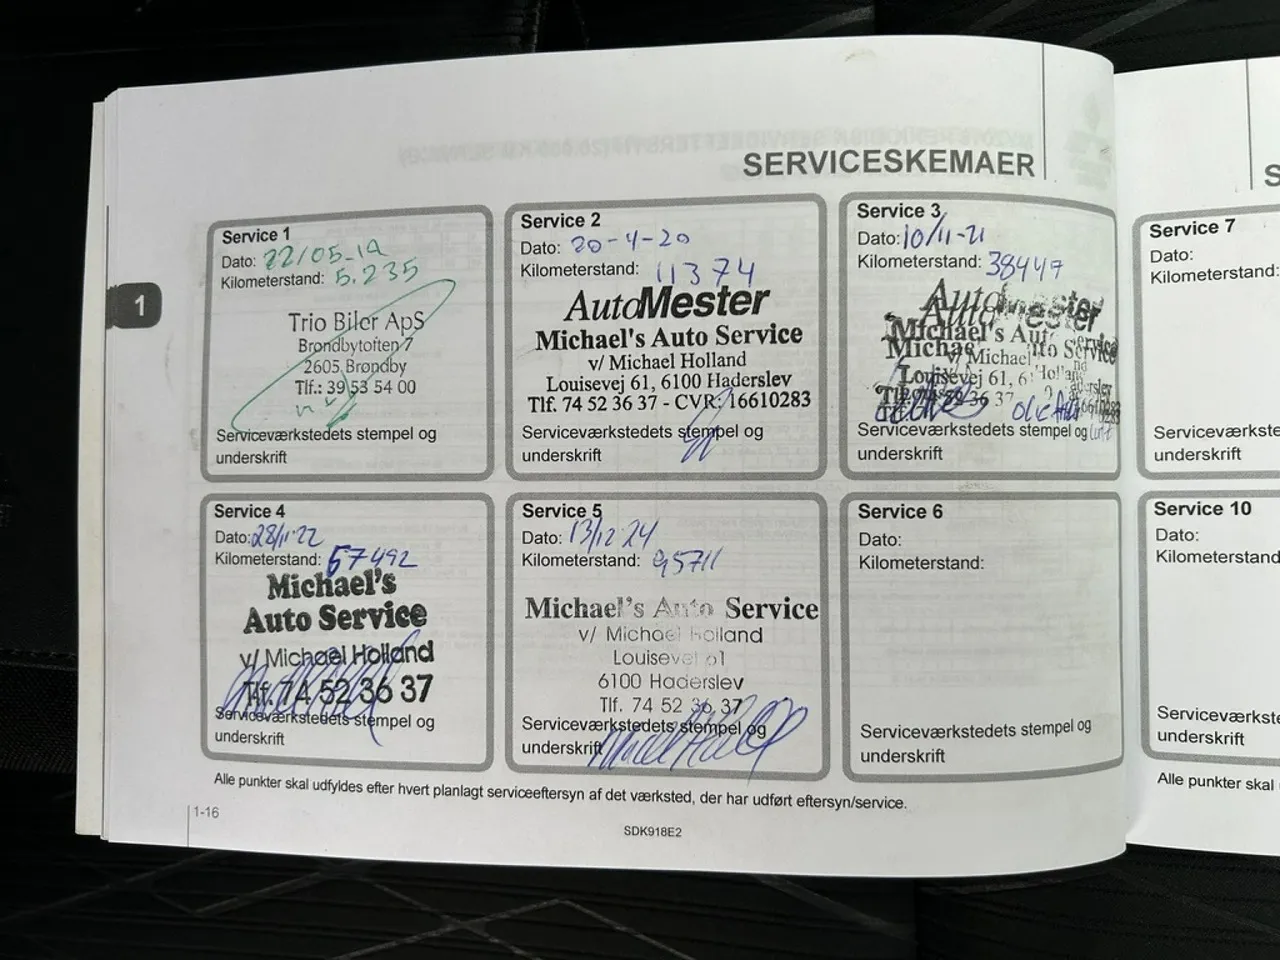 SERVICESKEMAER
1
Service 1
Dato: 22/05-19
Kilometerstand: 5.235
Trio Biler ApS
Brondbytoften 7
2605 Brøndby
Tlf.: 39 53 54 00
Serviceværkstedets stempel og
underskrift
Service 2
Dato: 20-4-20
Kilometerstand: 11374
AutoMester
Michael's Auto Service
v/ Michael Holland
Louisevej 61, 6100 Haderslev
Tlf. 74 52 36 37 - CVR: 16610283
Serviceværkstedets stempel og
underskrift
Service 3
Dato: 10/11-21
Kilometerstand: 38447
AutoMester
Michael's Auto Service
v/ Michael Holland
Louisevej 61, 6
Serviceværkstedets stempel og
underskrift
Service 4
Dato: 28/11-22
Kilometerstand: 67492
Michael's
Auto Service
v/ Michael Holland
Tlf. 74 52 36 37
Serviceværkstedets stempel og
underskrift
Service 5
Dato: 13/12-24
Kilometerstand: 95711
Michael's Auto Service
v/ Michael Holland
Louisevej 61
6100 Haderslev
Tlf. 74 52 36 37
Serviceværkstedets stempel og
underskrift
Service 6
Dato:
Kilometerstand:
Serviceværkstedets stempel og
underskrift
Alle punkter skal udfyldes efter hvert planlagt serviceeftersyn af det værksted, der har udført eftersyn/service.
1-16
SDK918E2
S
Service 7
Dato:
Kilometerstand:
Serviceværkste
underskrift
Service 10
Dato:
Kilometerstand
Serviceværkste
underskrift
Alle punkter skal